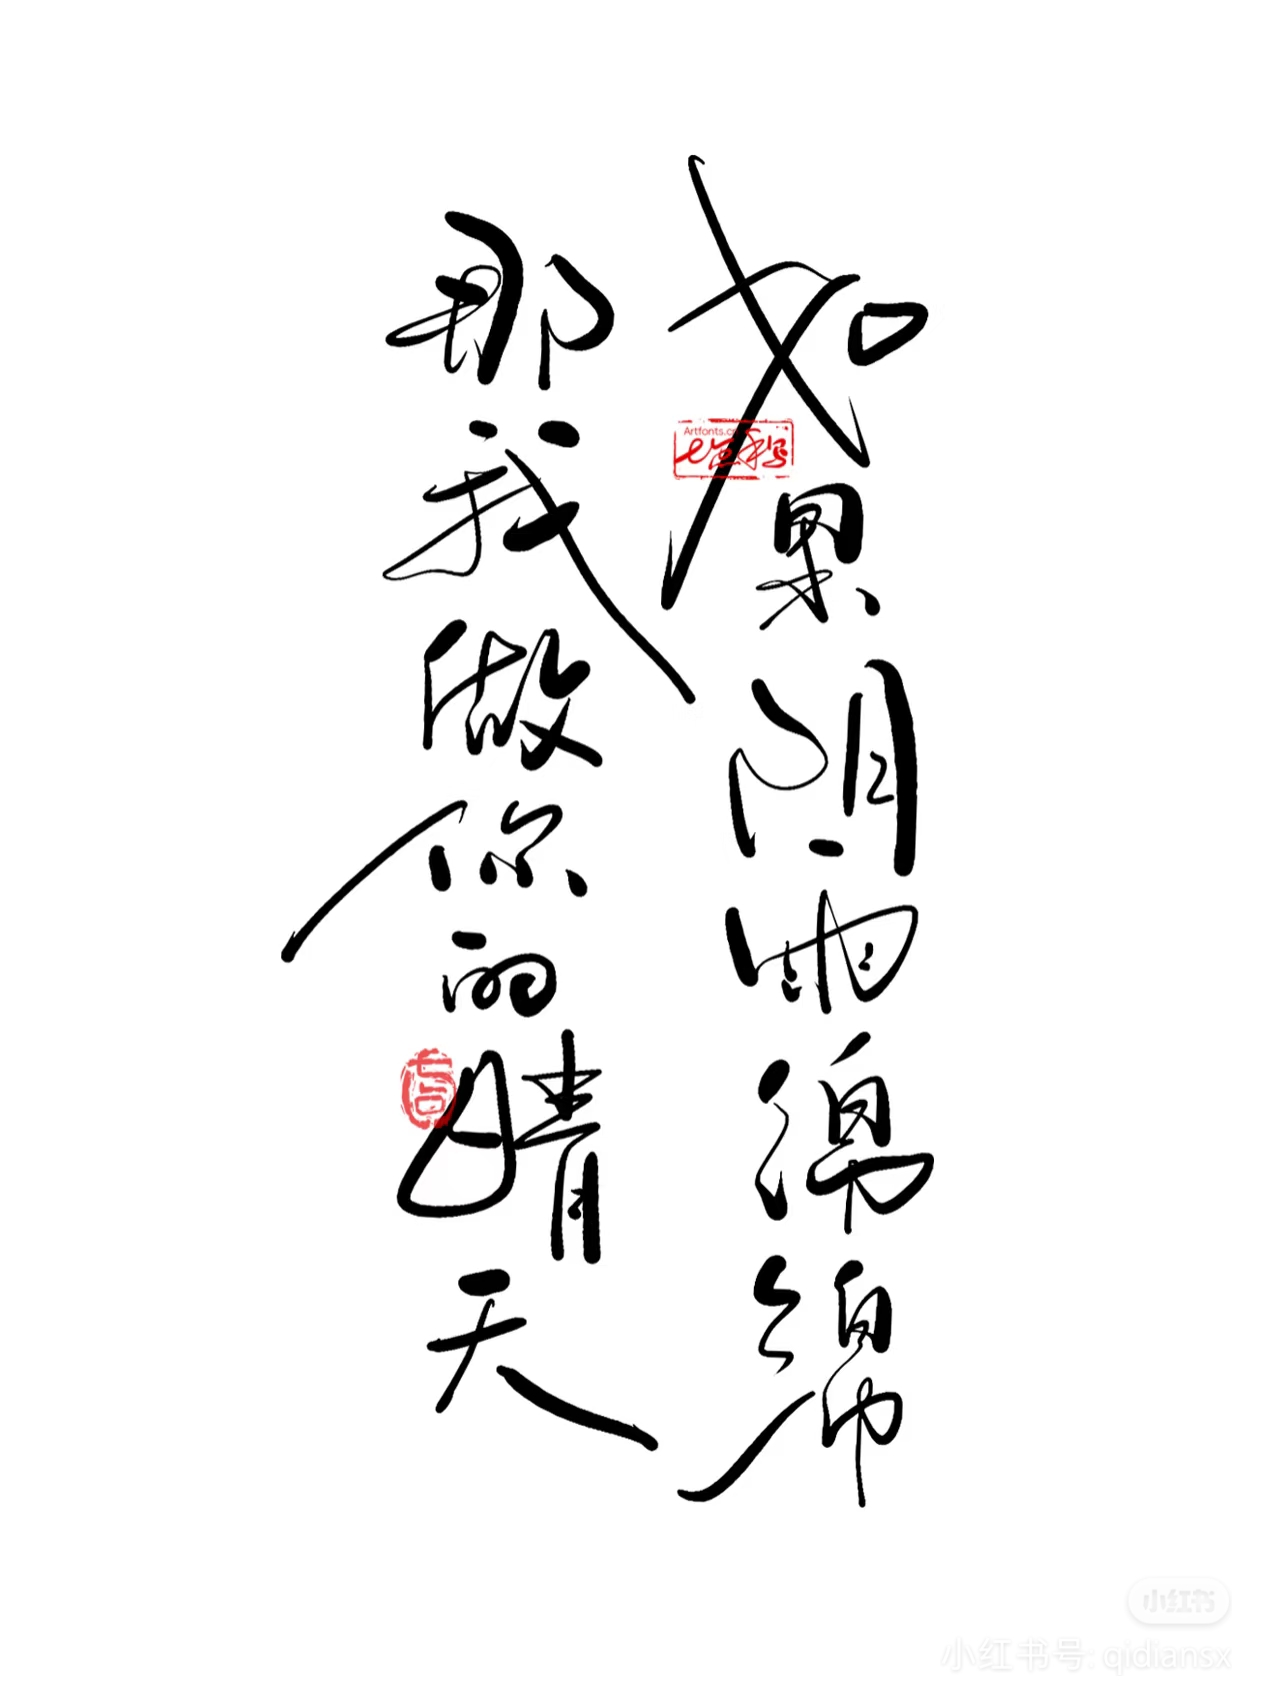 如果阴雨绵绵
那我做你的晴天
Artfonts.cn
七点手写
七点
小红书
小红书号: qidiansx